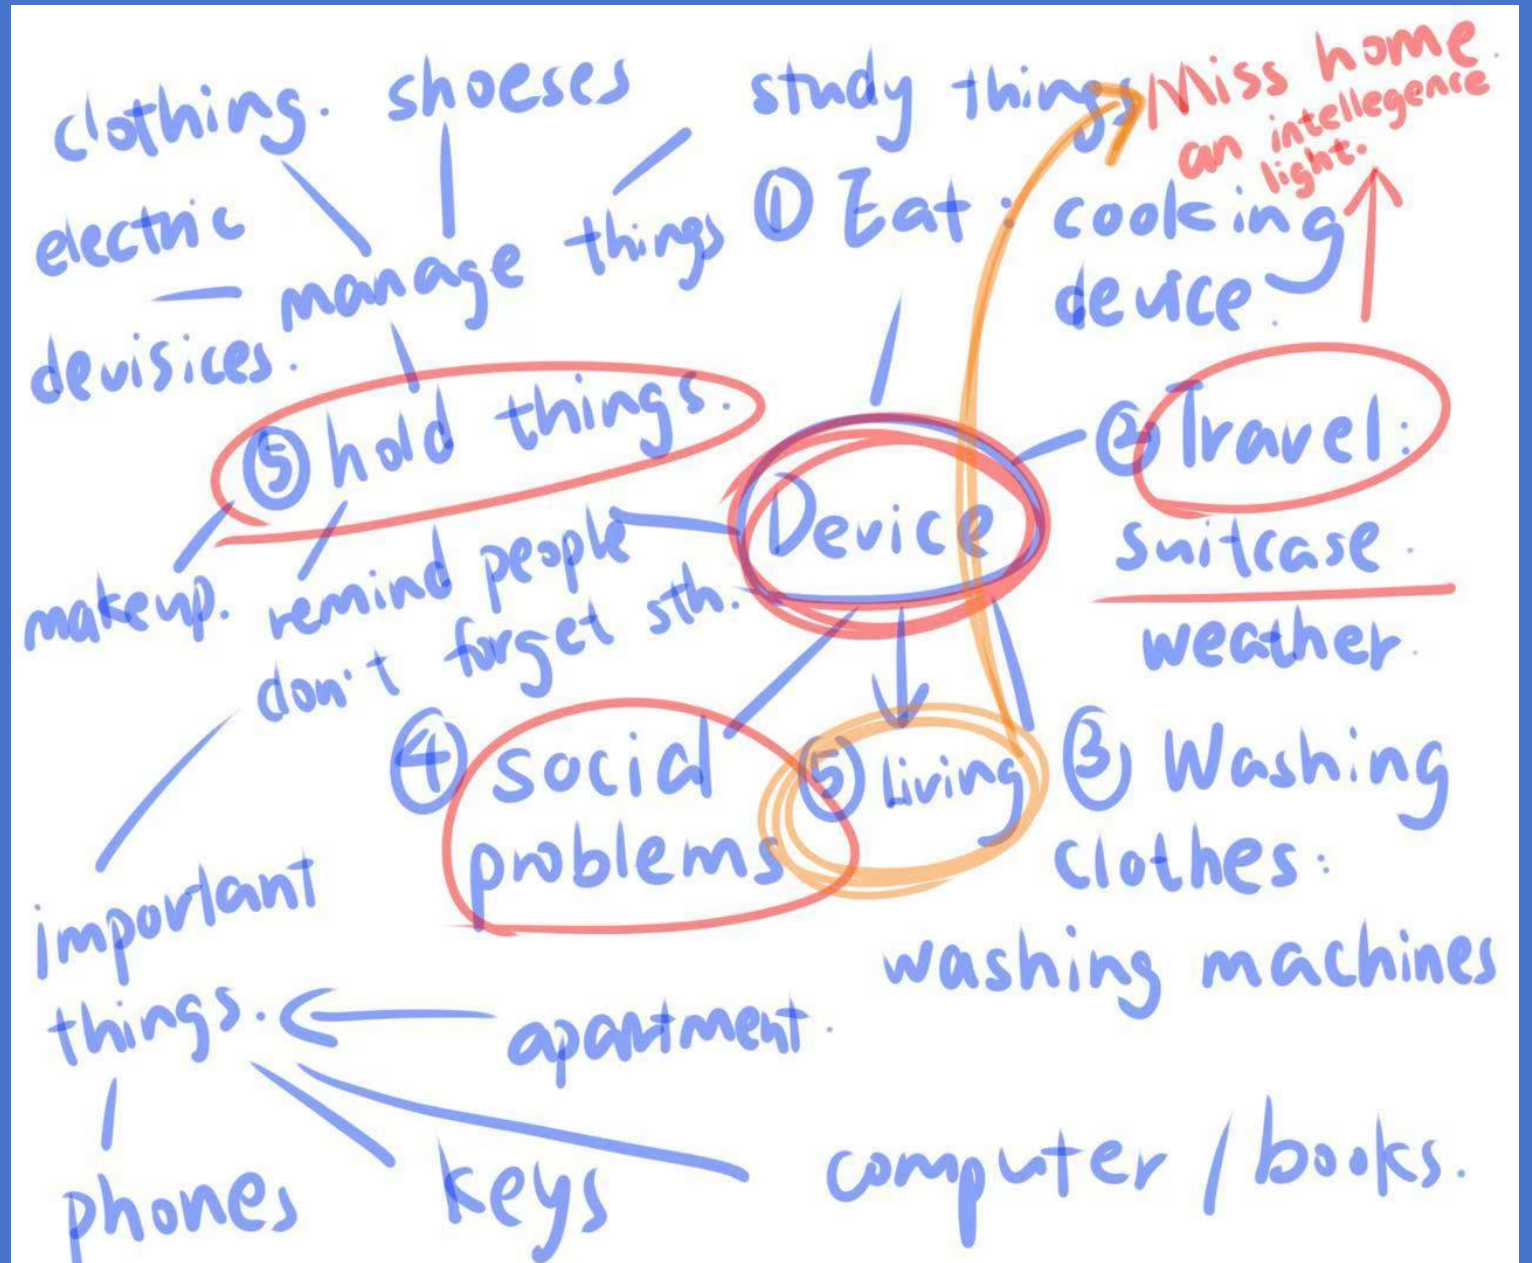 clothing. shoeses
study things
Miss home.
an intellegence
light.
electric
devisices.
manage things
① Eat: cooking
device.
⑤ hold things.
Device
② Travel:
suitcase.
weather.
makeup.
remind people
don't forget sth.
④ social
problems
⑤ Living
③ Washing
clothes:
washing machines
important
things.
apartment.
phones
keys
computer / books.